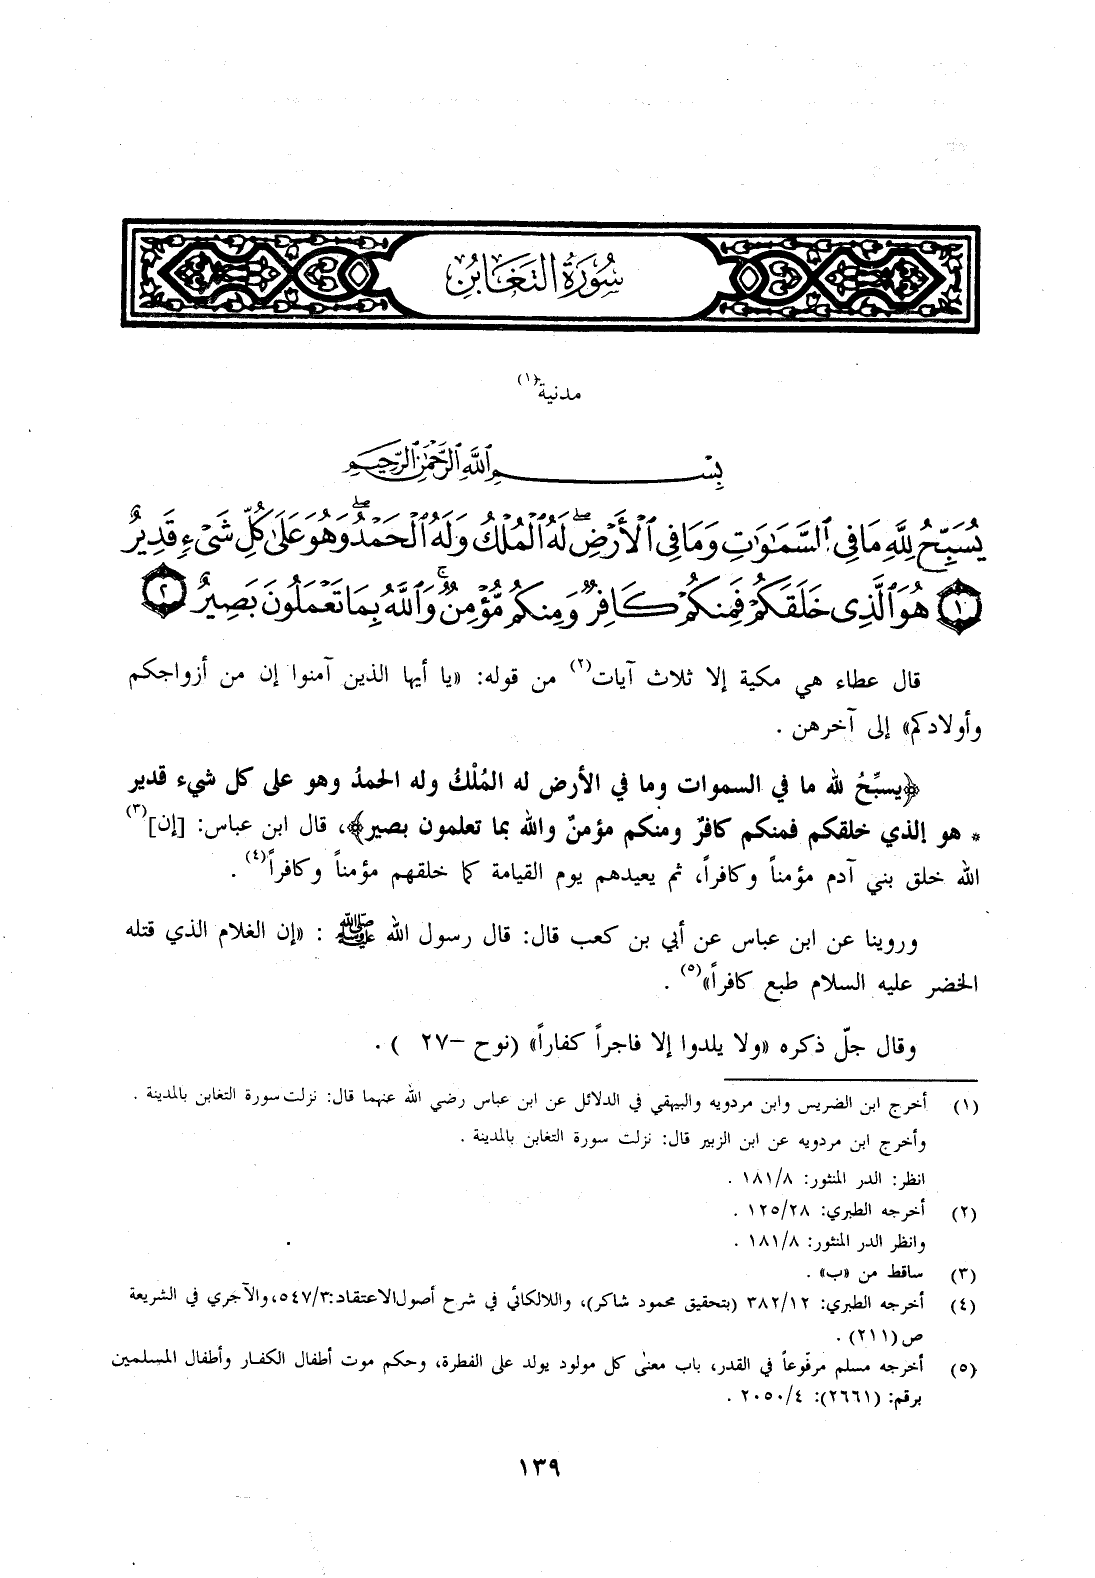 سُورَةُ التَّغَابُنِ
مدنية(١)
بِسْمِ اللَّهِ الرَّحْمَٰنِ الرَّحِيمِ
يُسَبِّحُ لِلَّهِ مَا فِى ٱلسَّمَـٰوَٰتِ وَمَا فِى ٱلْأَرْضِ ۖ لَهُ ٱلْمُلْكُ وَلَهُ ٱلْحَمْدُ ۖ وَهُوَ عَلَىٰ كُلِّ شَىْءٍ قَدِيرٌ
١ هُوَ ٱلَّذِى خَلَقَكُمْ فَمِنكُمْ كَافِرٌ وَمِنكُم مُّؤْمِنٌ ۚ وَٱللَّهُ بِمَا تَعْمَلُونَ بَصِيرٌ ٢
قال عطاء هي مكية إلا ثلاث آيات(٢) من قوله: «يا أيها الذين آمنوا إن من أزواجكم
وأولادكم» إلى آخرهن .
﴿يسبِّحُ لله ما في السموات وما في الأرض له المُلْكُ وله الحمدُ وهو على كل شيء قدير
* هو الذي خلقكم فمنكم كافرٌ ومنكم مؤمنٌ والله بما تعلمون بصير﴾، قال ابن عباس: [إن](٣)
الله خلق بني آدم مؤمناً وكافراً، ثم يعيدهم يوم القيامة كما خلقهم مؤمناً وكافراً(٤) .
وروينا عن ابن عباس عن أبي بن كعب قال: قال رسول الله ﷺ : «إن الغلام الذي قتله
الخضر عليه السلام طبع كافراً»(٥) .
وقال جلّ ذكره «ولا يلدوا إلا فاجراً كفاراً» (نوح – ٢٧ ) .
(١) أخرج ابن الضريس وابن مردويه والبيهقي في الدلائل عن ابن عباس رضي الله عنهما قال: نزلت سورة التغابن بالمدينة .
وأخرج ابن مردويه عن ابن الزبير قال: نزلت سورة التغابن بالمدينة .
انظر: الدر المنثور: ١٨١/٨ .
(٢) أخرجه الطبري: ١٢٥/٢٨ .
وانظر الدر المنثور: ١٨١/٨ .
(٣) ساقط من «ب» .
(٤) أخرجه الطبري: ٣٨٢/١٢ (بتحقيق محمود شاكر)، واللالكائي في شرح أصول الاعتقاد: ٥٤٧/٣، والآجري في الشريعة
ص (٢١١) .
(٥) أخرجه مسلم مرفوعاً في القدر، باب معنى كل مولود يولد على الفطرة، وحكم موت أطفال الكفار وأطفال المسلمين
برقم: (٢٦٦١): ٢٠٥٠/٤ .
١٣٩